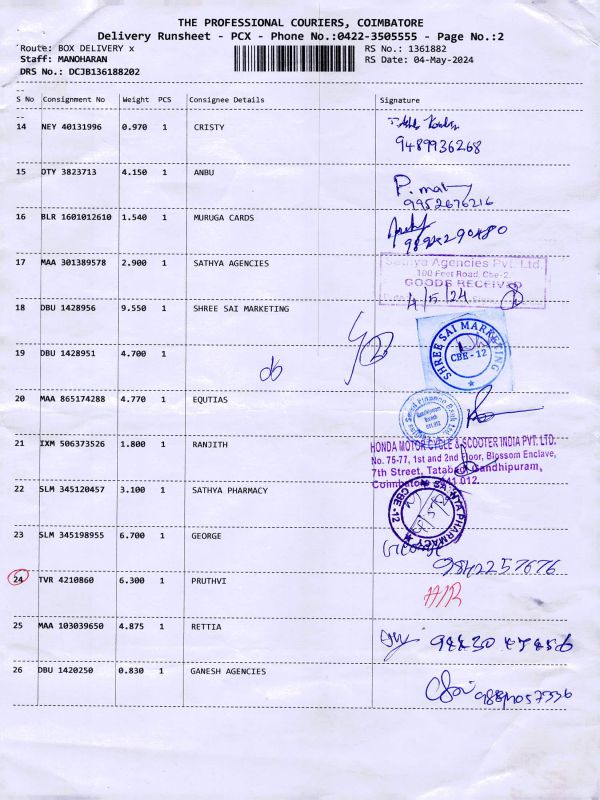 THE PROFESSIONAL COURIERS, COIMBATORE
Delivery Runsheet - PCX - Phone No.:0422-3505555 - Page No.:2
Route: BOX DELIVERY x
RS No.: 1361882
Staff: MANOHARAN
RS Date: 04-May-2024
DRS No.: DCJB136188202
S No Consignment No Weight PCS Consignee Details Signature
14 NEY 40131996 0.970 1 CRISTY
9489936268
15 DTY 3823713 4.150 1 ANBU
P. maly
9952676216
16 BLR 1601012610 1.540 1 MURUGA CARDS
17 MAA 301389578 2.900 1 SATHYA AGENCIES
Sathya Agencies Pvt. Ltd.
100 Feet Road, Cbe-2.
GOODS RECEIVED
4/5/24
18 DBU 1428956 9.550 1 SHREE SAI MARKETING
SHREE SAI MARKETING
CBE - 12
19 DBU 1428951 4.700 1
20 MAA 865174288 4.770 1 EQUTIAS
21 IXM 506373526 1.800 1 RANJITH
HONDA MOTOR CYCLE & SCOOTER INDIA PVT. LTD.
No. 75-77, 1st and 2nd Floor, Blossom Enclave,
7th Street, Tatabad, Gandhipuram,
Coimbatore - 641 012.
22 SLM 345120457 3.100 1 SATHYA PHARMACY
SATHYA PHARMACY
CBE -12
23 SLM 345198955 6.700 1 GEORGE
George
9842257676
24 TVR 4210860 6.300 1 PRUTHVI
25 MAA 103039650 4.875 1 RETTIA
26 DBU 1420250 0.830 1 GANESH AGENCIES